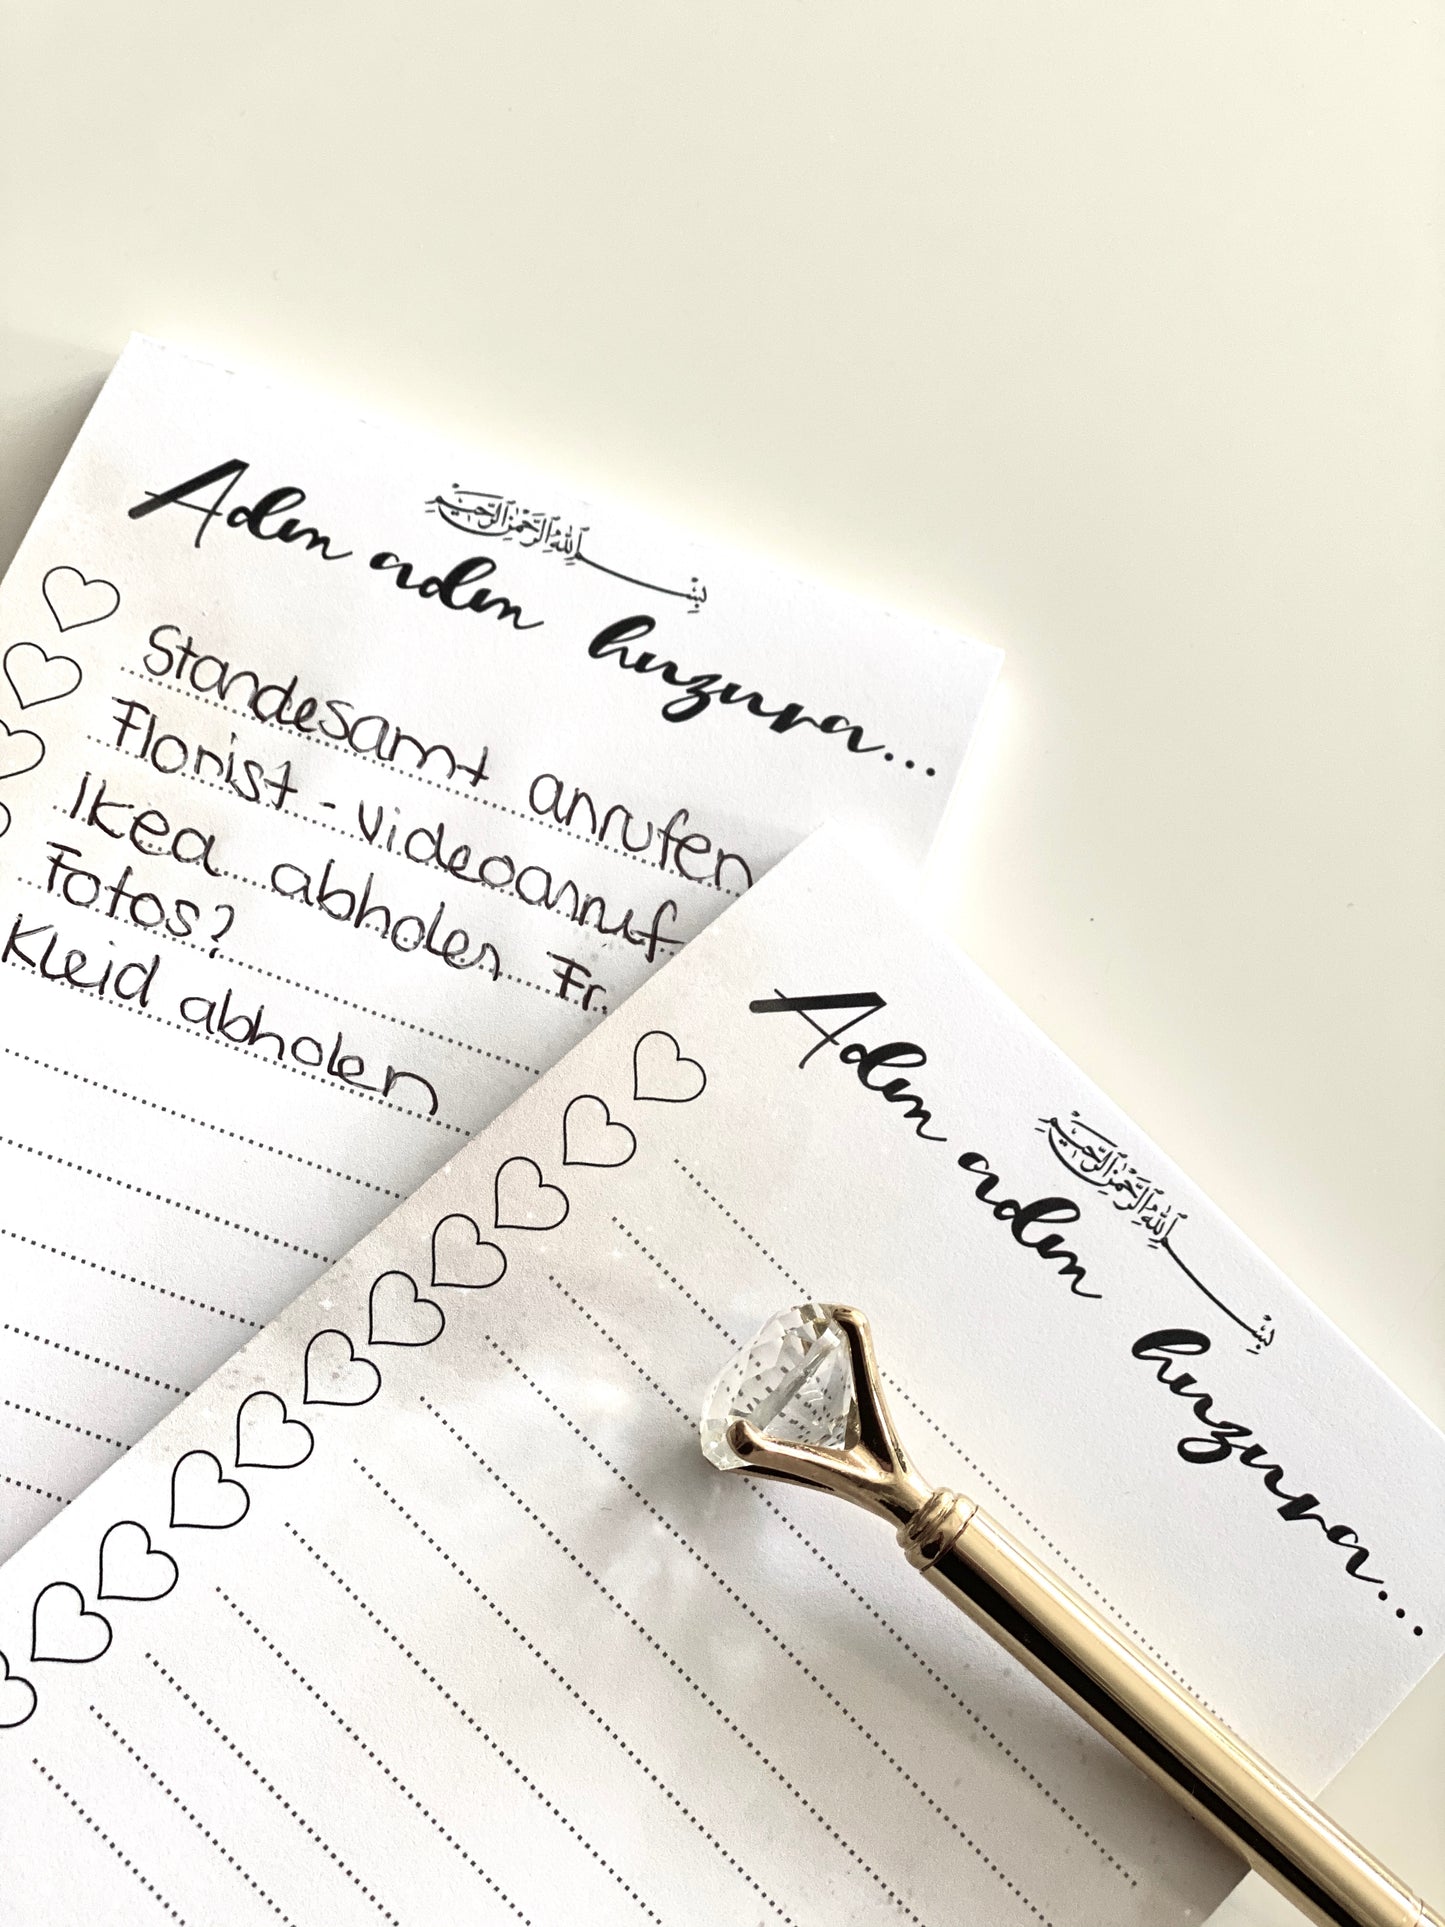 بِسْمِ اللهِ الرَّحْمٰنِ الرَّحِيْمِ
Adım adım huzura...
Standesamt anrufen
Florist - Videoanruf
Ikea abholen Fr.
Fotos?
Kleid abholen
بِسْمِ اللهِ الرَّحْمٰنِ الرَّحِيْمِ
Adım adım huzura...